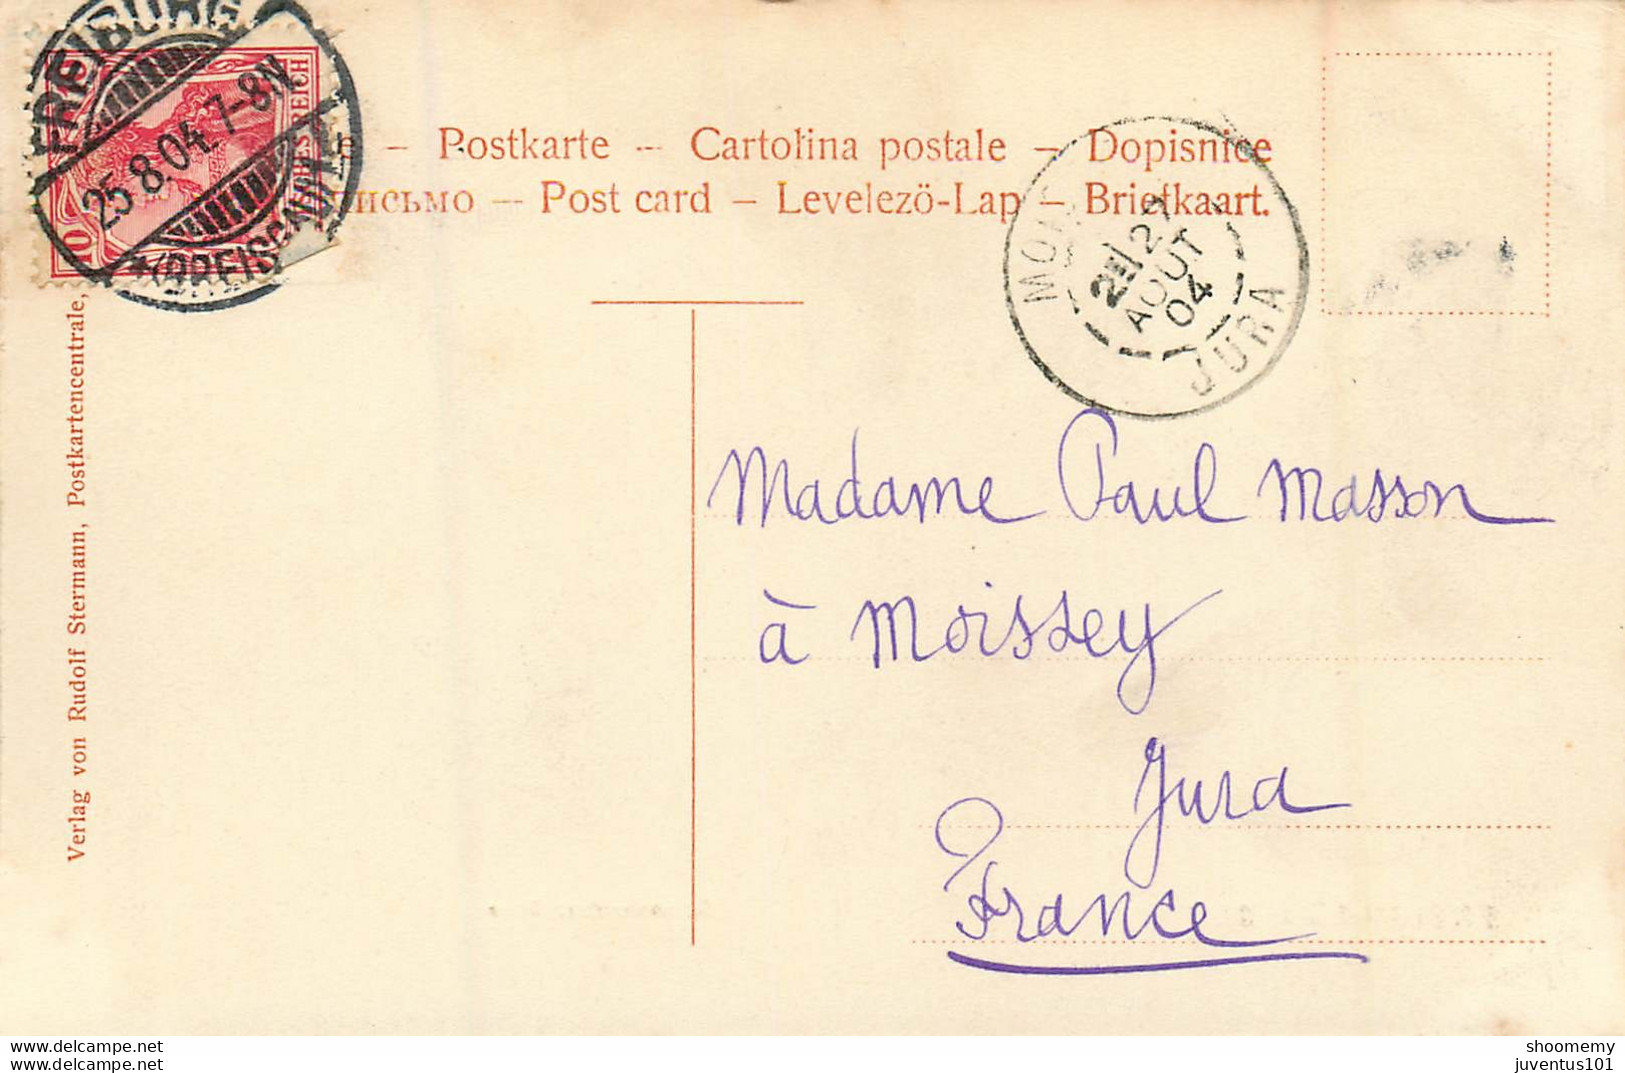 FREIBURG
25.8.04. 7-8N.
*(BREISGAU)
10
REICH
– Postkarte – Cartolina postale – Dopisnice
– Post card – Levelezö-Lap – Briefkaart.
27
AOUT
04
JURA
Verlag von Rudolf Stermann, Postkartencentrale,
Madame Paul Masson
à Moissey
Jura
France
www.delcampe.net
www.delcampe.net
shoomemy
juventus101